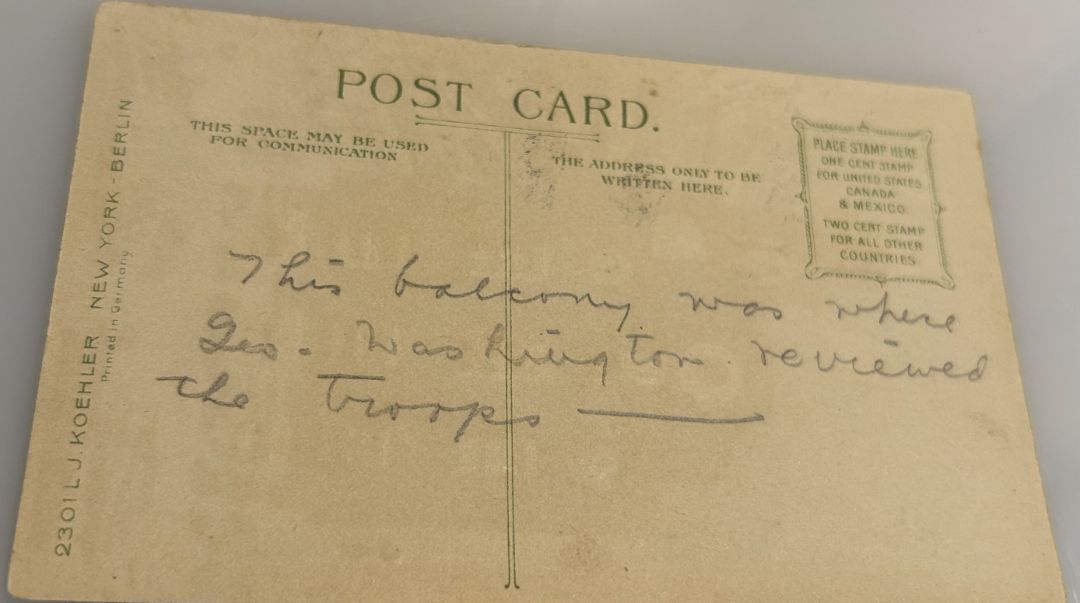 POST CARD.
THIS SPACE MAY BE USED
FOR COMMUNICATION
THE ADDRESS ONLY TO BE
WRITTEN HERE.
PLACE STAMP HERE
ONE CENT STAMP
FOR UNITED STATES
CANADA
& MEXICO.
TWO CENT STAMP
FOR ALL OTHER
COUNTRIES.
This balcony was where
Geo. Washington reviewed
the troops —
2301 L.J. KOEHLER NEW YORK-BERLIN
Printed in Germany